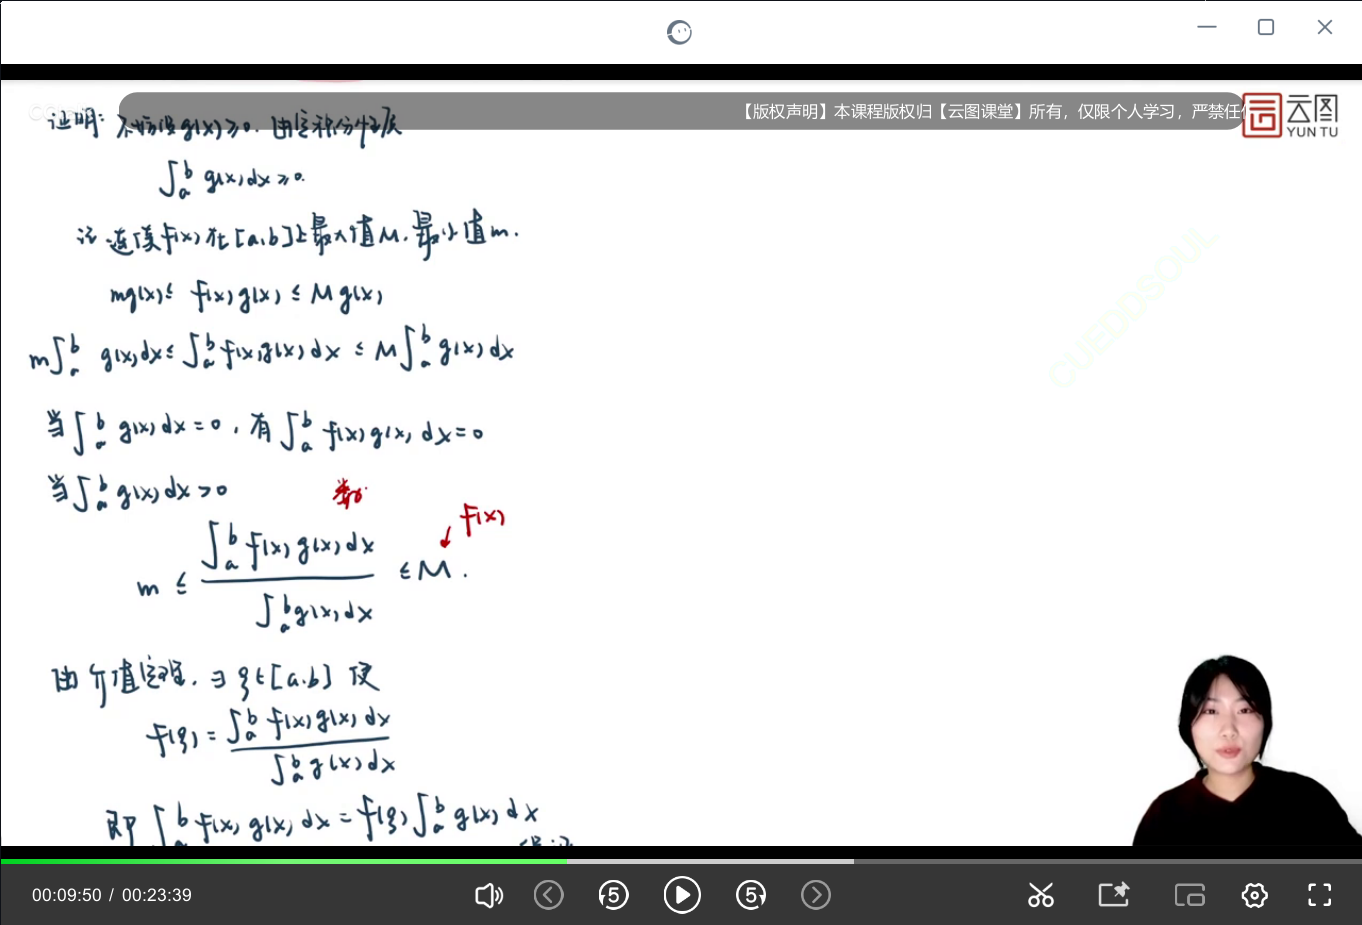 【版权声明】本课程版权归【云图课堂】所有，仅限个人学习，严禁任
云图
YUN TU
证明: 不妨设g(x)≥0. 由定积分性质
∫_a^b g(x)dx≥0.
设 连续f(x)在[a,b]上最大值M,最小值m.
mg(x)≤ f(x)g(x) ≤ Mg(x)
m∫_a^b g(x)dx≤∫_a^b f(x)g(x)dx ≤ M∫_a^b g(x)dx
当∫_a^b g(x)dx=0, 有∫_a^b f(x)g(x)dx=0
当∫_a^b g(x)dx>0
f(x)
m ≤ ∫_a^b f(x)g(x)dx / ∫_a^b g(x)dx ≤M.
由介值定理. ∃ξ∈[a,b] 使
f(ξ)= ∫_a^b f(x)g(x)dx / ∫_a^b g(x)dx
即∫_a^b f(x)g(x)dx=f(ξ)∫_a^b g(x)dx
CUEDDSOUL
00:09:50 / 00:23:39
5
5